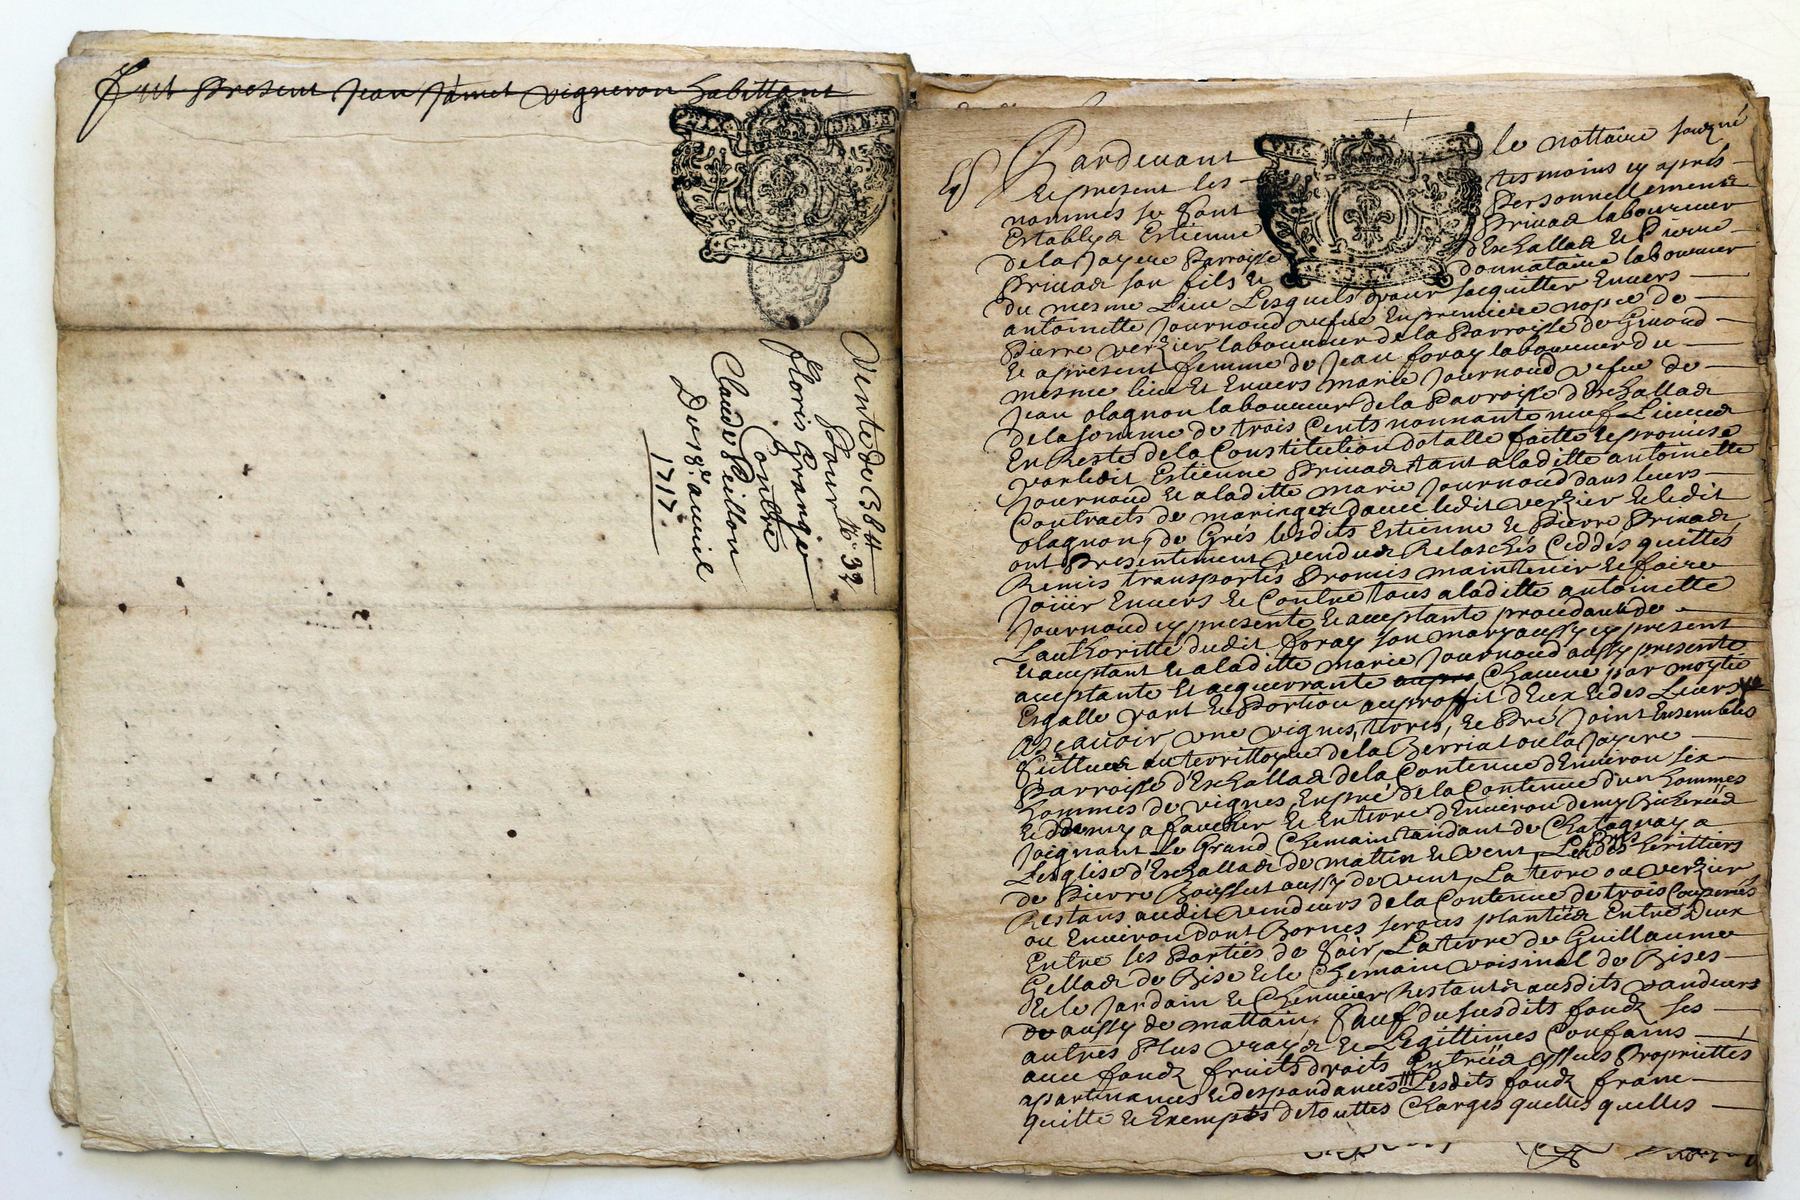 Fut Present Jean Jamet vigneron habittant
Vente de 384 ₶
Pour N.º 32
Floris Granger
Contre
Claude Peillon
Du 18.e avril
1717.
Pardevant le nottaire souzné
Et present les tesmoins cy apres
nommés se sont Personnellement
Establyd Estienne Privad laboureur
de la Jayere Parroisse d'Eschallad Et Pierre
Privad son fils Et donnataire laboureur
du mesme Lieu Lesquels pour sacquitter Envers
antoinette Journoud vefue En premiere nopce de
Pierre verzier laboureur de la Parroisse de Givord
Et apresent femme de Jean foray laboureur du
mesme lieu Et Envers marie Journoud vefue de
Jean olagnon laboureur de la Parroisse d'Eschallad
de la somme de trois Cents nonnante neuf Livred
En Reste de la Constitution dotalle faitte Et promise
par ledit Estienne Privad tant a laditte antoinette
Journoud Et a laditte marie Journoud dans leurs
Contracts de mariage d'avec ledit verzier Et ledit
olagnon, de Grés lesdits Estienne Et Pierre Privad
ont Presentement vendud Relaschés Ceddés quittés
Remis transportés Promis maintenir Et faire
Joüir Envers Et Contre tous a laditte antoinette
Journoud cy presente Et aceptante procedant de
L'authoritté dudit foray son mary aussy cy present
Et aceptant Et a laditte marie Journoud aussy presente
aceptante Et acquerrante Chacune par moytié
Esgalle part Et Portion au proffit d'Eux Et des Leurs
Asçavoir, une vignes, terres, Et Pré Joint Ensembles
scittued au territtoyre de la Berriat ou la Jayere
Parroisse d'Eschallad de la Contenue d'Environ six
hommés de vignes, En pré de la Contenue d'un hommés
Et demy a faucher Et En terre d'Environ demy Bicheréé
Joignant Le Grand Chemain tandant de Chatagnay a
L'esglise d'Eschallad de mattin Et vent, Les heritiers
de Pierre Bousset aussy de vent, La terre ou verzier
Restans audit vendeurs de la Contenue de trois Couperéés
ou Environ dont Bornes serons plantééd Entre Deux
Entre les Parties de soir, La terre de Guillaume
Gellad de Bise Et le Chemain voisinal de Bises
Et le Jardain Et Chenevier Restantd ausdits vandeurs
aussy de mattain, Sauf du susdits fondz ses
autres Plus vrayd Et Légittimes Confains
avec fondz fruits droits Entrééd Issues Propriettés
apartenances Et despandances, Lesdits fondz franc
quitte Et Exempts de touttes Charges quelles quelles